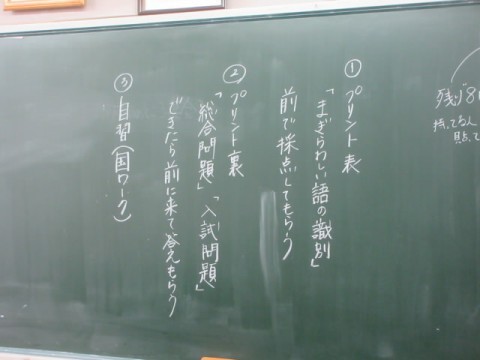 ① プリント表
「まぎらわしい語の識別」
前で採点してもらう
② プリント裏
「総合問題」「入試問題」
できたら前に来て答えもらう
③ 自習(国ワーク)
残り